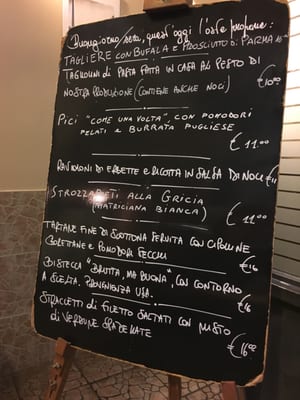 Buongiorno/sera, quest'oggi l'oste propone:
TAGLIERE CON BUFALA E PROSCIUTTO di PARMA
TAGLIOLINI di PASTA FATTA IN CASA AL PESTO DI
NOSTRA PRODUZIONE (CONTIENE ANCHE NOCI) €10.00
PICI "COME UNA VOLTA", CON POMODORI
PELATI E BURRATA PUGLIESE
€ 11.00
RAVIOLONI DI ERBETTE E RICOTTA IN SALSA DI NOCI €11
STROZZAPRETI ALLA GRICIA
(MATRICIANA BIANCA) € 11.00
TARTARE FINE DI SCOTTONA SERVITA CON CIPOLLINE
BORETTANE E POMODORI SECCHI €16
BISTECCA "BRUTTA, MA BUONA", CON CONTORNO
A SCELTA. PROVENIENZA USA. €16
STRACCETTI di FILETTO SALTATI CON MISTO
di VERDURE SPADELLATE €16.00